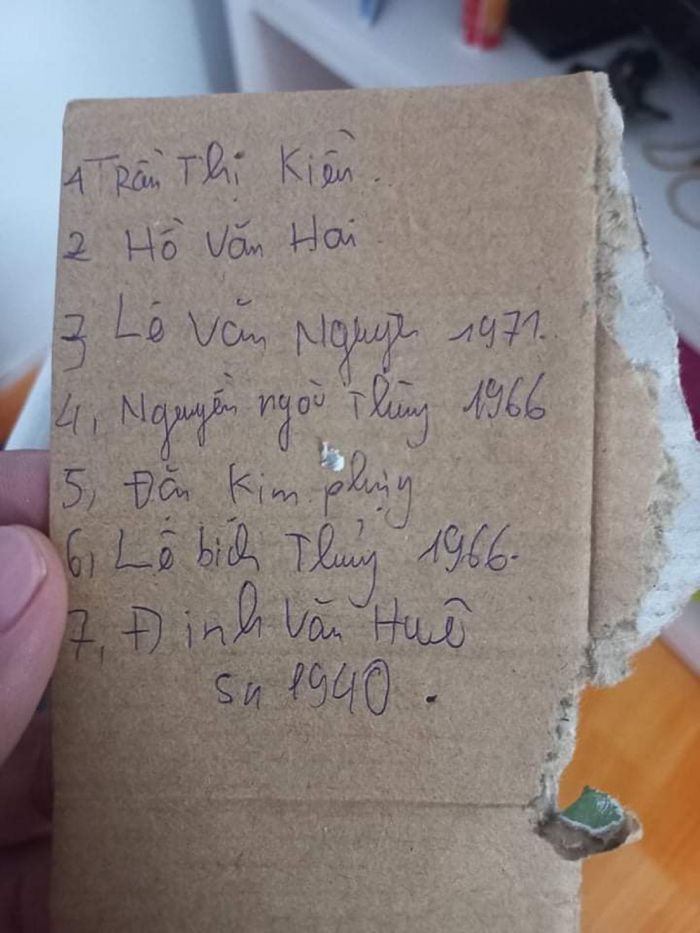 1 Trần Thị Kiền.
2 Hồ Văn Hai
3 Lê Văn Nguyên 1971.
4, Nguyễn ngọc Thủy 1966
5, Đặng Kim phụng
6, Lê bích Thủy 1966.
7, Đinh Văn Huê
Sn 1940.